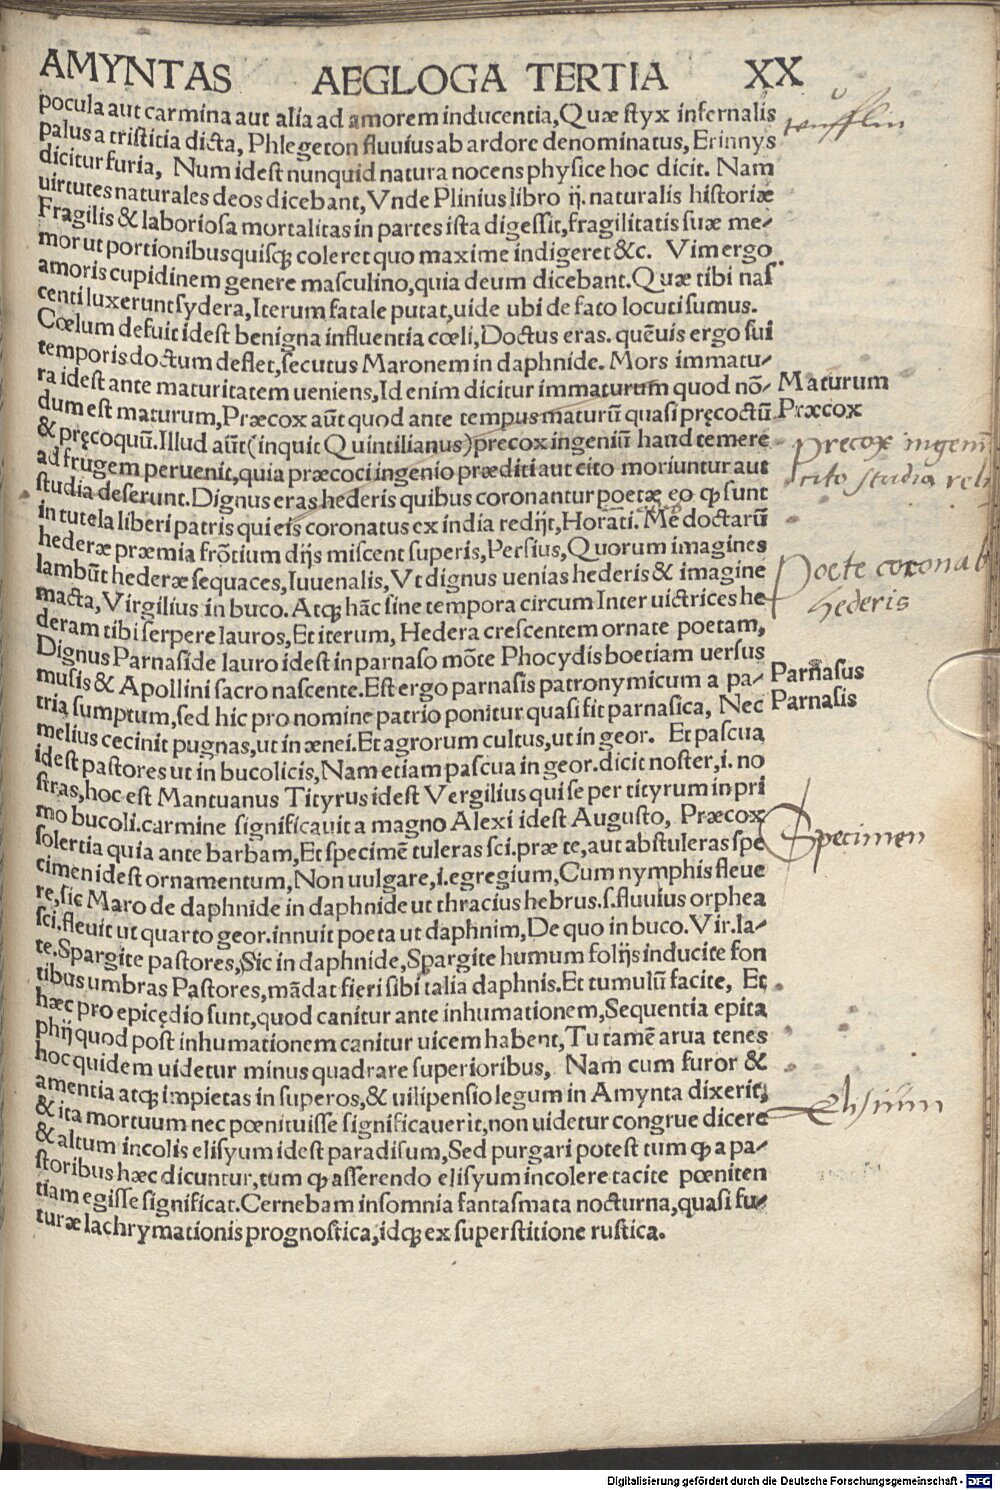 AMYNTAS AEGLOGA TERTIA XX
pocula aut carmina aut alia ad amorem inducentia, Quæ styx infernalis
palus a tristitia dicta, Phlegeton fluuius ab ardore denominatus, Erinnys
dicitur furia, Num idest nunquid natura nocens physice hoc dicit. Nam
uirtutes naturales deos dicebant, Vnde Plinius libro ij. naturalis historiæ
Fragilis & laboriosa mortalitas in partes ista digessit, fragilitatis suæ me-
mor ut portionibus quisq; coleret quo maxime indigeret &c. Vim ergo
amoris cupidinem genere masculino, quia deum dicebant. Quæ tibi nas
centi luxerunt sydera, Iterum fatale putat, uide ubi de fato locuti sumus.
Cœlum defuit idest benigna influentia cœli, Doctus eras. quēuis ergo sui
temporis doctum deflet, secutus Maronem in daphnide. Mors immatu-
ra idest ante maturitatem ueniens, Id enim dicitur immaturum quod nō-
dum est maturum, Præcox aūt quod ante tempus maturū quasi pręcoctū
& pręcoquū. Illud aūt (inquit Quintilianus) precox ingeniū haud temere
ad frugem peruenit, quia præcoci ingenio præditi aut cito moriuntur aut
studia deserunt. Dignus eras hederis quibus coronantur poetæ eo ꝙ sunt
in tutela liberi patris qui eis coronatus ex india redijt, Horati. Me doctarū
hederæ præmia frōtium dijs miscent superis, Persius, Quorum imagines
lambūt hederæ sequaces, Iuuenalis, Vt dignus uenias hederis & imagine
macta, Virgilius in buco. Atq; hāc sine tempora circum Inter uictrices he
deram tibi serpere lauros, Et iterum, Hedera crescentem ornate poetam,
Dignus Parnaside lauro idest in parnaso mōte Phocydis boetiam uersus
musis & Apollini sacro nascente. Est ergo parnasis patronymicum a pa-
tria sumptum, sed hic pro nomine patrio ponitur quasi sit parnasica, Nec
melius cecinit pugnas, ut in ænei. Et agrorum cultus, ut in geor. Et pascua
idest pastores ut in bucolicis, Nam etiam pascua in geor. dicit noster, i. no
stras, hoc est Mantuanus Tityrus idest Vergilius qui se per tityrum in pri
mo bucoli. carmine significauit a magno Alexi idest Augusto, Præcox
solertia quia ante barbam, Et specimē tuleras sci. præ te, aut abstuleras spe
cimen idest ornamentum, Non uulgare, i. egregium, Cum nymphis fleue
re, sic Maro de daphnide in daphnide ut thracius hebrus. s. fluuius orphea
sci. fleuit ut quarto geor. innuit poeta ut daphnim, De quo in buco. Vir. la-
te. Spargite pastores, Sic in daphnide, Spargite humum folijs inducite fon
tibus umbras Pastores, mādat fieri sibi talia daphnis. Et tumulū facite, Et
hæc pro epicędio sunt, quod canitur ante inhumationem, Sequentia epita
phij quod post inhumationem canitur uicem habent, Tu tamē arua tenes
hoc quidem uidetur minus quadrare superioribus, Nam cum furor &
amentia atq; impietas in superos, & uilipensio legum in Amynta dixerit,
& ita mortuum nec pœnituisse significauerit, non uidetur congrue dicere
& altum incolis elisyum idest paradisum, Sed purgari potest tum ꝙ a pa-
storibus hæc dicuntur, tum ꝙ asserendo elisyum incolere tacite pœniten
tiam egisse significat. Cernebam insomnia fantasmata nocturna, quasi fu-
turæ lachrymationis prognostica, idq; ex superstitione rustica.
Maturum
Præcox
precox ingeniū
cito studia
Poete
hederis
Parnasus
Parnasis
Specimen
Elisium
Digitalisierung gefördert durch die Deutsche Forschungsgemeinschaft - DFG